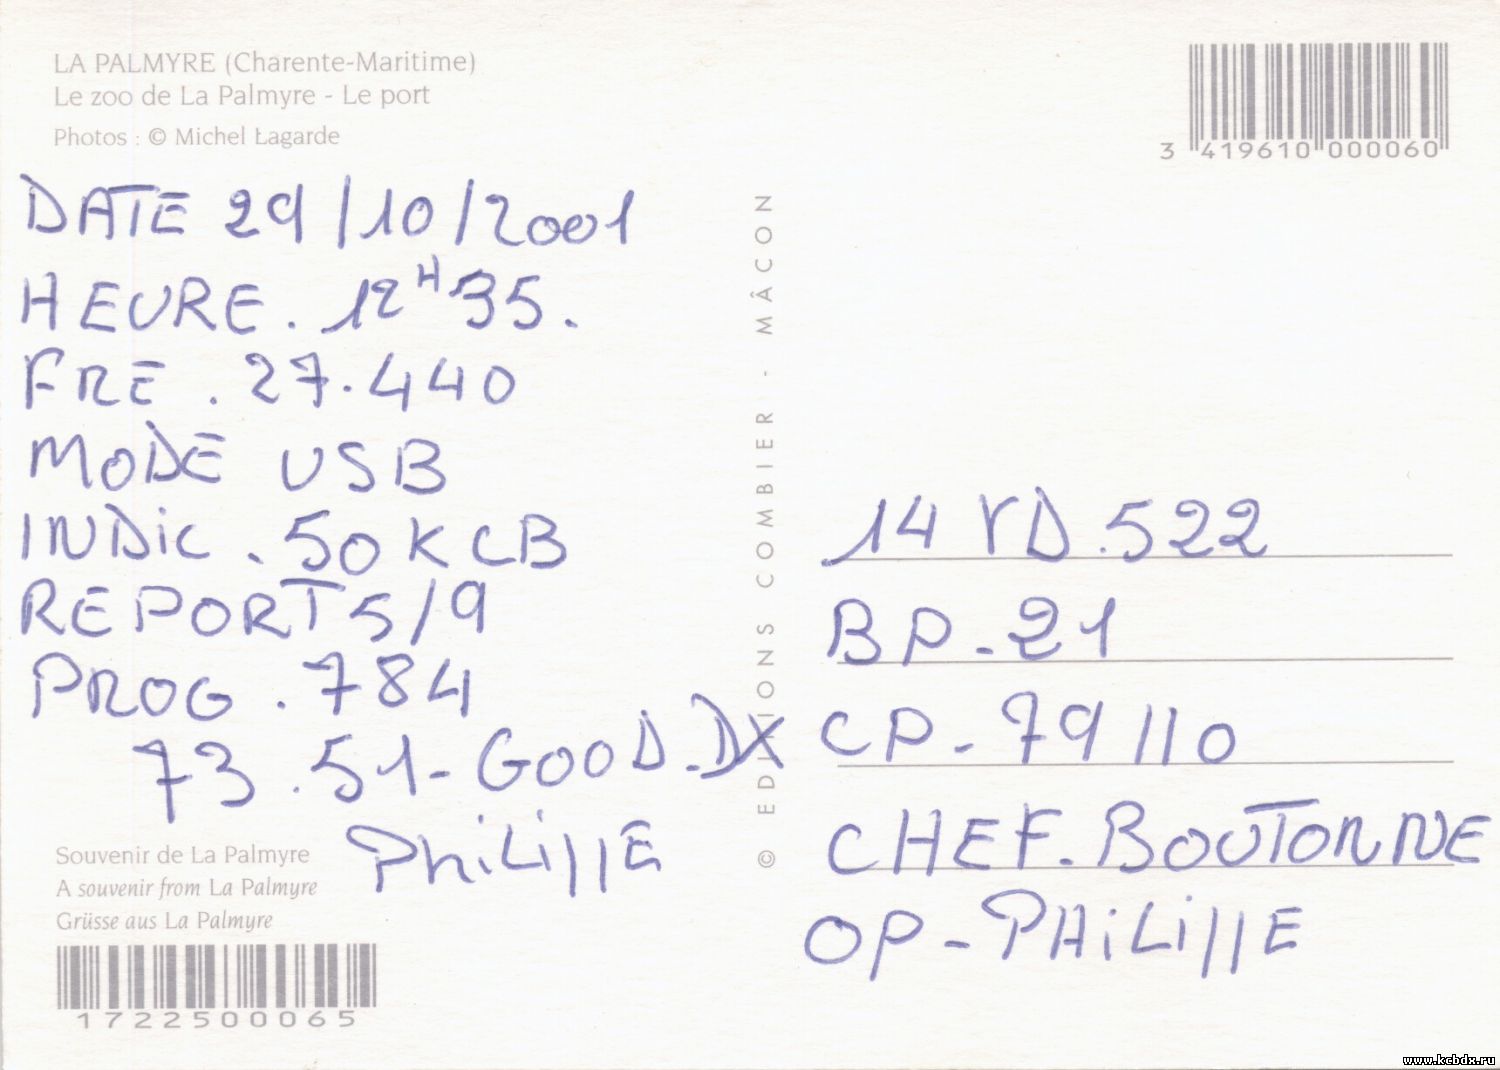 LA PALMYRE (Charente-Maritime)
Le zoo de La Palmyre - Le port
Photos : © Michel Lagarde
3 419610 000060
DATE 29/10/2001
HEURE. 12H35.
FRE. 27.440
MODE USB
INDiC. 50KCB
REPORT 5/9
PROG. 784
73.51-GOOD.DX
PHiLippE
Souvenir de La Palmyre
A souvenir from La Palmyre
Grüsse aus La Palmyre
1722500065
© EDITIONS COMBIER - MÂCON
14 YD.522
BP-21
CP-79110
CHEF.BOUTONNE
OP-PHiLippE
www.kcbdx.ru